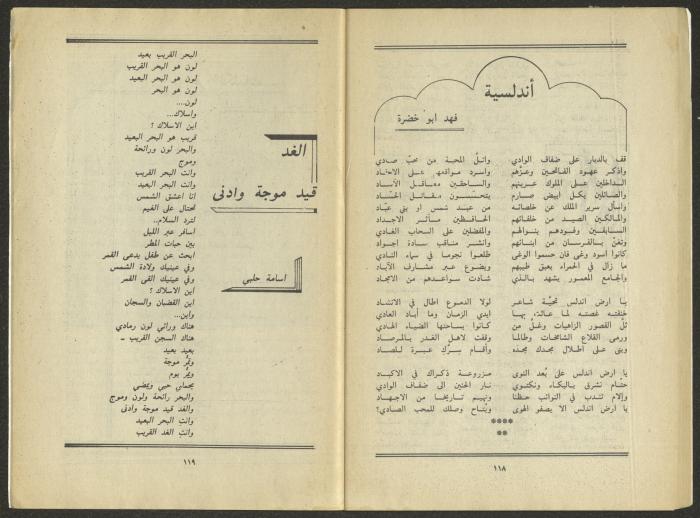 أندلسية
فهد ابو خضرة
قف بالديار على ضفاف الوادي واتلُ المحبة من محبٍّ صادي
واذكر عهود الفاتحين وعزّهم واسرد مواقعهم على الاحفاد
الداخلين على الملوك عرينهم والساحقين معاقل الآساد
والصائلين بكل ابيض صارم
واسأل سرير الملك عن خلصائه من عبد شمس او بني عبّاد
والمالكين الصيد من خلفائهم الحافظين مآثر الاجداد
السابقين وفودهم بنوالهم والمفضلين على السحاب الغادي
وتغنّ بالفرسان من ابنائهم وانشر مناقب سادة اجواد
كانوا اسود وغى فان حسموا الوغى طلعوا نجوما في سماء النادي
ما زال في الحمراء يعبق طيبهم ويضوع عبر مشارف الآباد
والجامع المعمور يشهد بالذي شادت سواعدهم من الامجاد
يا ارض اندلس تحيّة شاعر لولا الدموع اطال في الانشاد
خنقته غصته لما عاثت بها ايدي الزمان وما أباد العادي
ثلّ القصور الزاهيات وغل من كانوا بساحتها الضياء الهادي
ورمى القلاع الشامخات وطالما وقفت لاهل الغدر بالمرصاد
وبنى على اطلال مجدك مجده وأقام سرّك عبرة
يا ارض اندلس على بُعد النوى مزروعة ذكراك في الاكباد
حتام نشرق بالبكاء ونكتوي نار الحنين الى ضفاف الوادي
وإلام نندب في النوائب حظنا ونهيم تاريخا من الاجهاد
يا ارض اندلس الا يصفو الهوى ويُتاح وصلك للمحب الصادي؟
****
**
١١٨
الغد
قيد موجة وادنى
اسامة حلبي
البحر القريب بعيد
لون هو البحر القريب
لون هو البحر البعيد
لون هو البحر
لون....
واسلاك...
اين الاسلاك ؟
قريب هو البحر البعيد
والبحر لون ورائحة
وموج
وانت البحر القريب
وانت البحر البعيد
انا اعشق الشمس
تحتال على الغيم
لترد السلام..
اسافر عبر الليل
بين حبات المطر
ابحث عن طفل بدعى القمر
وفي عينيك ولادة الشمس
وفي عينيك القى القمر
اين الاسلاك ؟
اين القضبان والسجان
واين...
هناك ورائي لون رمادي
هناك السجن القريب -
بعيد بعيد
وتمرُّ موجة
ويمرُّ يوم
يحملني حبي ويمضي
والبحر رائحة ولون وموج
والغد قيد موجة وأدنى
وانتِ البحر البعيد
وانتِ الغد القريب
١١٩